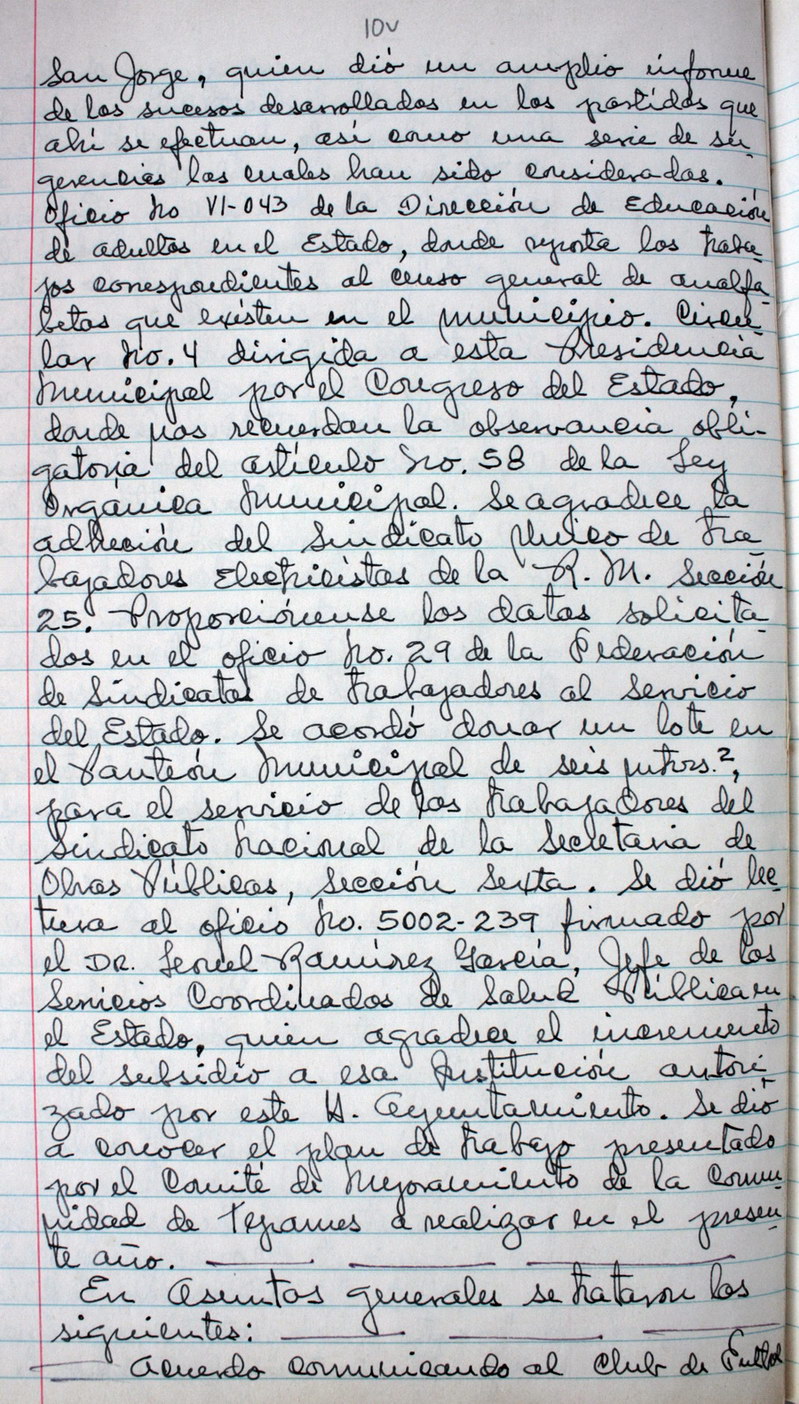 10v
San Jorge, quien dió un amplio informe
de los sucesos desarrollados en los partidos que
ahí se efectuan, así como una serie de su-
gerencias las cuales han sido consideradas.
Oficio No VI-043 de la Dirección de Educación
de adultos en el Estado, donde reporta los traba-
jos correspondientes al censo general de analfa-
betas que existen en el municipio. Circu-
lar No. 4 dirigida a esta Presidencia
Municipal por el Congreso del Estado,
donde nos recuerdan la observancia obli-
gatoria del artículo No. 58 de la Ley
Orgánica Municipal. Se agradece la
adheción del Sindicato Unico de Tra-
bajadores Electricistas de la R. M. Sección
25. Proporciónense los datos solicita-
dos en el oficio No. 29 de la Federación
de Sindicatos de Trabajadores al Servicio
del Estado. Se acordó donar un lote en
el Panteón Municipal de seis mtrs.²,
para el servicio de los trabajadores del
Sindicato Nacional de la Secretaria de
Obras Públicas, Sección Sexta. Se dió lec-
tura al oficio No. 5002-239 firmado por
el DR. Ramírez García, Jefe de los
Servicios Coordinados de Salud Pública en
el Estado, quien agradece el incremento
del subsidio a esa Institución autori-
zado por este H. Ayuntamiento. Se dió
a conocer el plan de trabajo presentado
por el Comité de Mejoramiento de la Comu-
nidad de Tepames a realizar en el presen-
te año.
En Asuntos generales se trataron los
siguientes:
Acuerdo comunicando al Club de Futbol